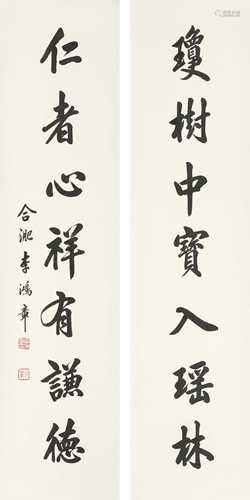 瓊樹中寶入瑶林
仁者心祥有謙德
合淝李鴻章